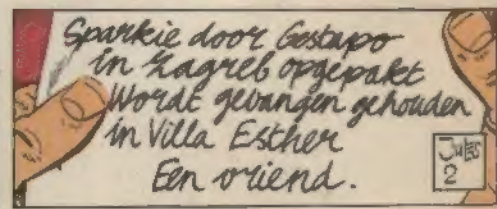 Sparkie door Gestapo
in Zagreb opgepakt
Wordt gevangen gehouden
in Villa Esther
Een vriend.
2